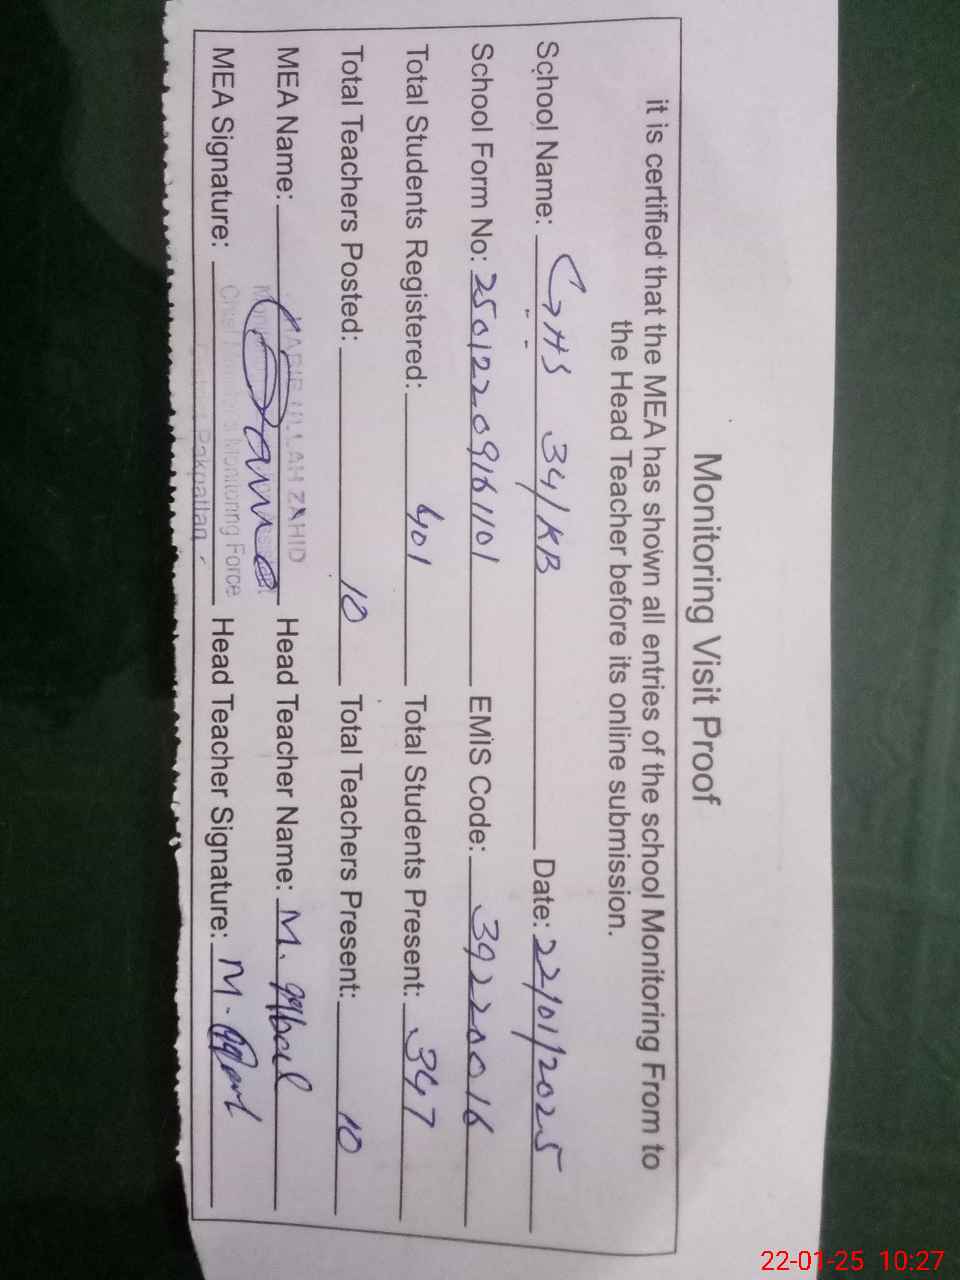 Monitoring Visit Proof
it is certified that the MEA has shown all entries of the school Monitoring From to
the Head Teacher before its online submission.
School Name: GHS 34/KB Date: 22/01/2025
School Form No: 25012209161101 EMiS Code: 39220016
Total Students Registered: 401 Total Students Present: 347
Total Teachers Posted: 10 Total Teachers Present: 10
MEA Name: ULLAH ZAHID Head Teacher Name: M. Iqbal
MEA Signature: Monitoring Force Head Teacher Signature: M. Iqbal
Pakpattan
22-01-25 10:27